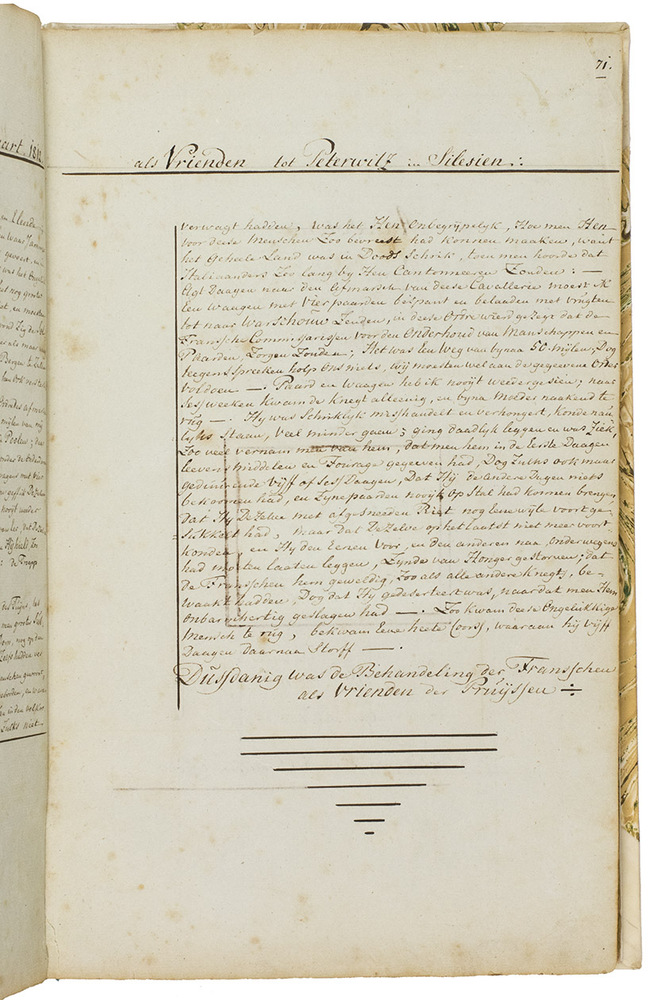 71.
als Vrienden tot Peterwitz in Silesien:
verwagt hadden, was het Hen Onbegrijpelyk, Hoe men Hen
voor deese Menschen Zoo bevreest had konnen maaken, want
het Geheele Land was in Doods Schrik, toen men hoorde dat
Italiaanders Zoo lang by Hen Cantonneeren Zouden: —
Agt Daagen naar den Afmarsch van deese Cavallerie moest Ik
Een Waagen met Vier paarden bespant en belaaden met vrugten
tot naar Warschouw Zenden, in deese Ordre wierd gezegt dat de
Fransche Commissarissen voor den Onderhoud van Manschappen en
Paarden, Zorgen Zouden; Het was Een Weg van byna 50 Mylen, Dog
teegenspreeken holp Ons niets, Wij moesten wel aan de gegeevene Order
voldoen —. Paard en Waagen heb ik nooijt weedergesien; naar
Ses weeken kwam de Knegt alleenig, en byna Moeder naakend te
rug —. Hy was Schriklyk misshandelt en verhongert, konde naau-
lyks Staan, veel minder gaan; ging daadlyk leggen en was Ziek,
Zoo veel vernam men van hem, dat men hem in de Eerste Daagen
leevensmiddelen en Fourage gegeeven had, Dog Zulks ook maar
geduurende Vijf of Ses Daagen, Dat Hy de andere Dagen niets
bekoomen had, en Zyne paarden nooyt op Stal had konnen brengen,
dat Hy Dezelve met afgesneeden Riet nog Eene wyle voort ge-
sukkelt had, maar dat Dezelve op het laatst niet meer voort
konden, en Hy den Eenen voor, en den anderen naa, Onderweegen
had moeten laaten leggen, Zynde van Honger gestorven; dat
de Franschen hem geweldig, Zoo als alle andere Knegts, be-
waakt hadden, Dog dat Hy gedeserteert was, naar dat men Hem
onbarmhertig geslagen had —. Zoo kwam deese Ongelukkige
Mensch te rug, bekwam Eene heete Coors, waaraan hij vijff
Daagen daarnaa Storff —.
Dussdanig was de Behandeling der Franschen
als Vrienden der Pruijssen